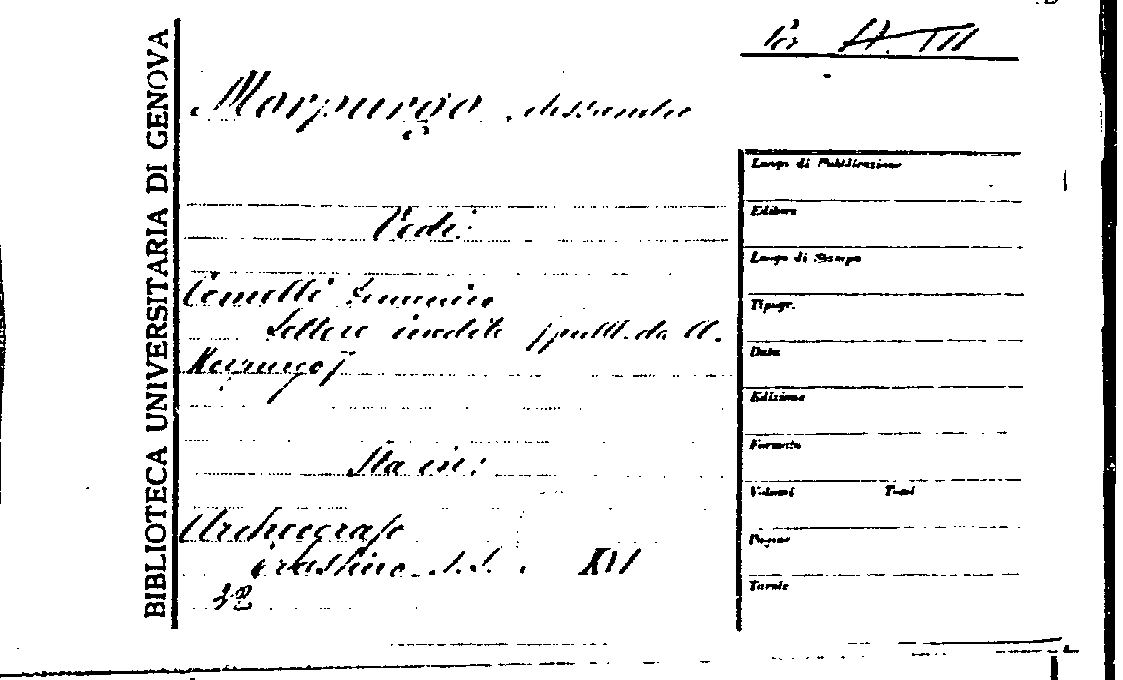 BIBLIOTECA UNIVERSITARIA DI GENOVA
Morpurgo Alessandro
Luogo di Pubblicazione
Editore
Luogo di Stampa
Tipogr.
Data
Edizione
Formato
Volumi Tomi
Pagine
Tavole
Vedi:
Lettere inedite (pubbl. da A.
Morpurgo)
Sta in:
Archeografo
triestino XVI